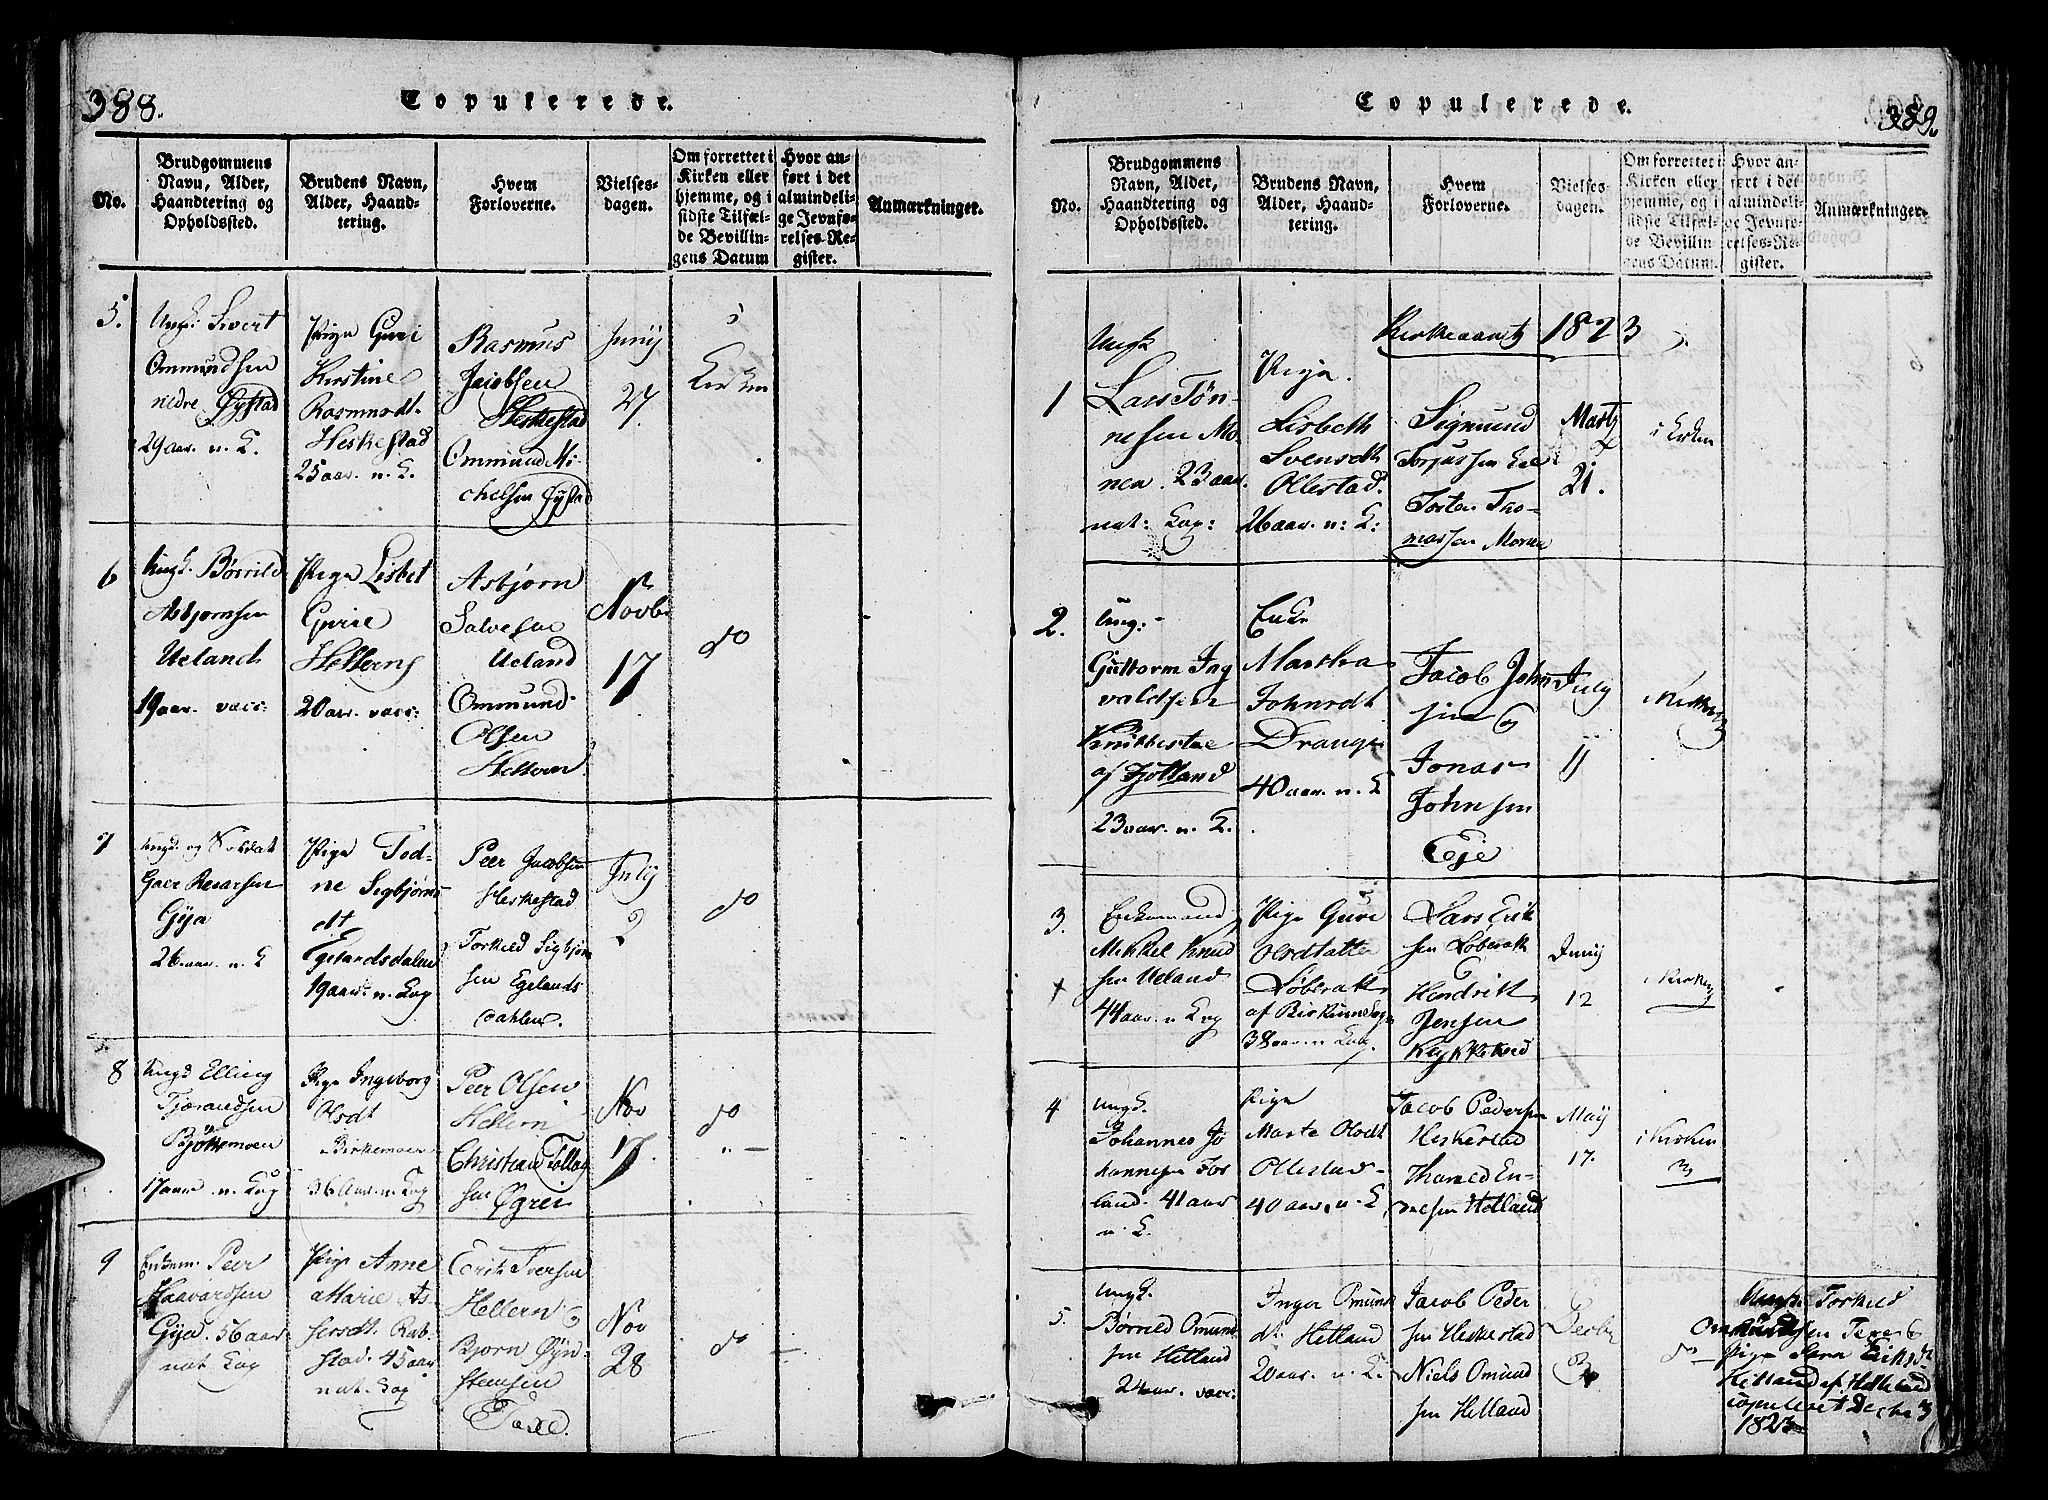 388.
Copulerede.
No.
Brudgommens
Navn, Alder,
Haandtering og
Opholdssted.
Brudens Navn,
Alder, Haand-
tering.
Hvem
Forloverne.
Vielses-
dagen.
Om forrettet i
Kirken eller
hjemme, og i
sidste Tilfæl-
de Bevillin-
gens Datum
Hvor an-
ført i det
almindeli-
ge Jevnfø-
relses-Re-
gister.
Anmærkninger.
5.
Ungk: Sivert
Ommundsen
nedre Øystad
29 aar. n. K.
Pige Guri
Kirstine
Rasmusdt.
Heskestad
25 aar. n. K.
Rasmus
Jacobsen
Heskestad
Ommund Mi-
chelsen Øystad
Junij
27
i
Kirken
6
Ungk. Børrild
Asbjørnsen
Ueland
19 aar. vacc:
Pige Lisbet
Gurie
Hellern
20 aar. vacc:
Asbjørn
Salvesen
Ueland
Ommund
Olsen
Hellern
Novbr
17
do
7
Ungk. og Soldat
Gya
26 aar. n. K
Pige Tod-
ne Sigbjørns
dt
Egelandsdalen
19 aar. n. Kop
Peer Jacobsen
Heskestad
Torkild Sigbjørn
sen Egelands
dahlen.
Julij
2
do
8
Ungk Elling
Tjørandsen
Bjørkemoen
17 aar. n. Kop
Pige Ingeborg
Olsdt
Birkemoen
36 Aar. n. Kop
Peer Olsen
Hellern
Christian Tollag
sen Øgrei
Nov
17.
do
9
Enkem. Peer
Haavardsen
Gya. 56 aar
nat. Kop
Pige Anne
Marie As-
sersdt. Rab-
stad. 45 aar
nat. Kop
Erich Iversen
Hellern
Bjørn Øyn-
stensen
Nov
28
do
389.
Copulerede.
No.
Brudgommens
Navn, Alder,
Haandtering og
Opholdssted.
Brudens Navn,
Alder, Haand-
tering.
Hvem
Forloverne.
Vielses-
dagen.
Om forrettet i
Kirken eller
hjemme, og i
sidste Tilfæl-
de Bevillin
gens Datum.
Hvor an-
ført i det
almindeli-
ge Jevnfø-
relses-Re-
gister.
Anmærkninger.
Kirkeaaret 1823
1
Ungk
Lars Tøn-
nesen Mo-
nea. 23 aar.
nat: Kop:
Pige.
Lisbeth
Svensdt
Ollestad.
26 aar. n: K:
Sigmund
Torjussen
Torsten Tho-
massen
Marty
21.
i Kirken
2.
Ung:
Guttorm Ing
valdsen
af Fjotland
23 aar. n. K.
Enke
Martha
Johnsdt
Drange
40 aar. n. K
Jacob John-
sen og
Jonas
Johnsen
Eeje
July
11
i Kirken
3.
Enkemand
Mikkel Knud
sen Ueland
44 aar. n Kop
Pige Guri
Løbrak
38 aar n Kop.
Lars Erik
sen Løbrak
Hendrik
Jensen
Junij
12
i Kirken
4
Ungk.
Johannes Jo
hannesen Fos
land. 41 aar
n. K.
Pige
Marte Olsdt
Ollestad
40 aar. n. K
Jacob Pedersen
Heskestad
Helland
May
17.
i Kirken
5.
Ungk.
Børrild Omund
sen Hetland
24 aar. vacc:
Inger Omunds
dt. Hetland
20 aar. n. K.
Jacob Peder
sen Heskestad
Niels Omund
sen Hetland
Decbr
3
do
Ungk. Torkild
Pige Sara Eriksdt
Hetland af Helleland
copuleret Decbr 3
1823